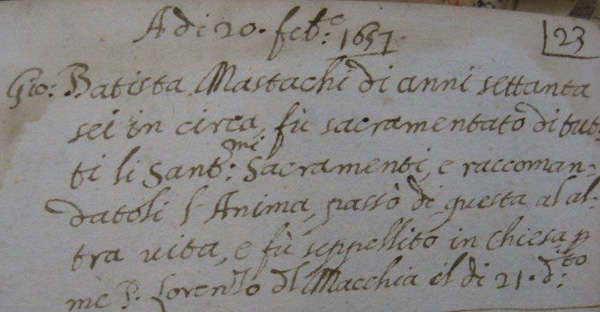 A di 20. feb.e 1657. 23
Gio: Batista Mastachi di anni settanta
sei in circa, fù sacramentato di tut-
ti li Sant:mi Sacramenti, e raccoman-
datoli l'Anima, passò di questa al al-
tra vita, e fù seppellito in chiesa p
me P. Lorenzo del Macchia il di 21. d:to